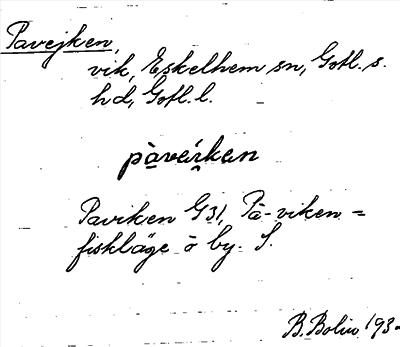 Pavejken,
vik, Eskelhem sn, Gotl. s.
hd, Gotl. l.
pàveíken
Paviken G31, Pà-viken =
fiskläge o by. S.
B. Bolin 193